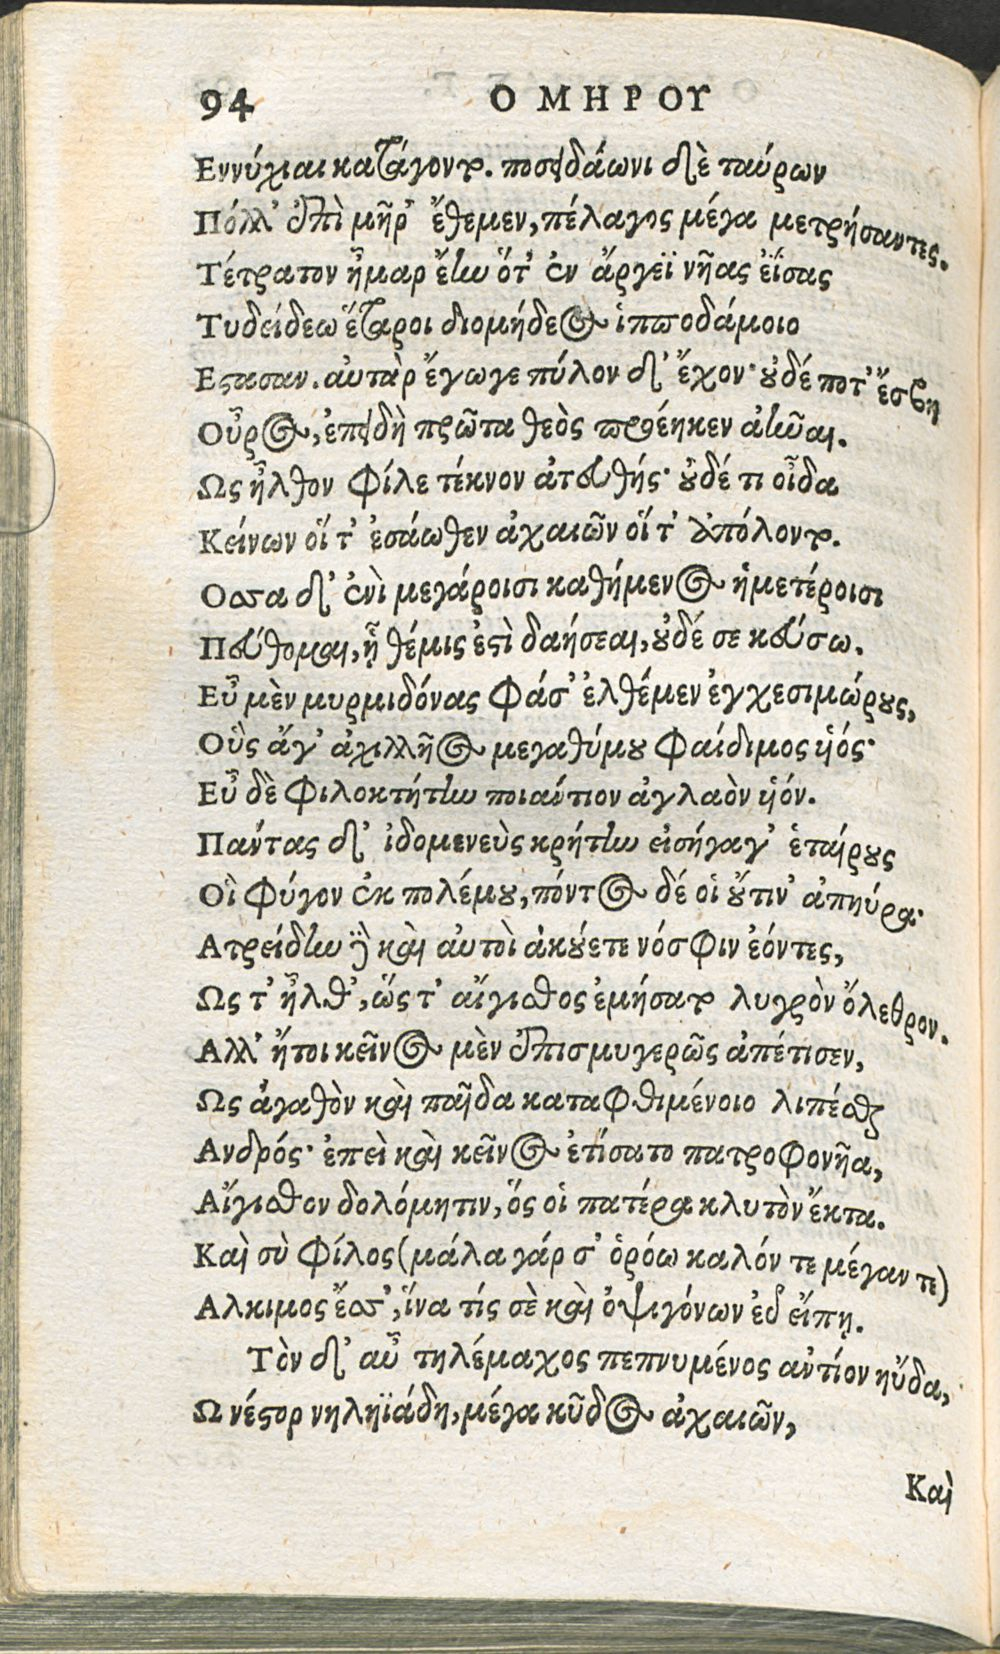 94 ΟΜΗΡΟΥ
Εννύχιαι κατάγοντο. ποσειδάωνι δὲ ταύρων
Πόλλ' ἐπὶ μῆρ' ἔθεμεν, πέλαγος μέγα μετρήσαντες.
Τέτρατον ἦμαρ ἔην ὅτ' ἐν ἄργεϊ νῆας ἐΐσας
Τυδείδεω ἕταροι διομήδεος ἱπποδάμοιο
Εστασαν. αὐτὰρ ἔγωγε πύλον δ' ἔχον· οὐδέ ποτ' ἔσβη
Οὖρος, ἐπειδὴ πρῶτα θεὸς προέηκεν ἀῆναι.
Ως ἦλθον φίλε τέκνον ἀπευθής· οὐδέ τι οἶδα
Κείνων οἵ τ' ἐσάωθεν ἀχαιῶν οἵ τ' ἀπόλοντο.
Οσσα δ' ἐνὶ μεγάροισι καθήμενος ἡμετέροισι
Πεύθομαι, ᾗ θέμις ἐστὶ δαήσεαι, οὐδέ σε κεύσω.
Εὖ μὲν μυρμιδόνας φάσ' ἐλθέμεν ἐγχεσιμώρους,
Οὓς ἄγ' ἀχιλλῆος μεγαθύμου φαίδιμος υἱός·
Εὖ δὲ φιλοκτήτην ποιάντιον ἀγλαὸν υἱόν.
Πάντας δ' ἰδομενεὺς κρήτην εἰσήγαγ' ἑταίρους
Οἳ φύγον ἐκ πολέμου, πόντος δέ οἱ οὔτιν' ἀπηύρα·
Ατρείδην δὲ καὶ αὐτοὶ ἀκούετε νόσφιν ἐόντες,
Ως τ' ἦλθ', ὥς τ' αἴγισθος ἐμήσατο λυγρὸν ὄλεθρον.
Αλλ' ἤτοι κεῖνος μὲν ἐπισμυγερῶς ἀπέτισεν,
Ως ἀγαθὸν καὶ παῖδα καταφθιμένοιο λιπέσθαι
Ανδρός· ἐπεὶ καὶ κεῖνος ἐτίσατο πατροφονῆα,
Αἴγισθον δολόμητιν, ὅς οἱ πατέρα κλυτὸν ἔκτα.
Καὶ σὺ φίλος (μάλα γάρ σ' ὁρόω καλόν τε μέγαν τε)
Αλκιμος ἔσσ', ἵνα τίς σὲ καὶ ὀψιγόνων εὖ εἴπῃ.
Τὸν δ' αὖ τηλέμαχος πεπνυμένος ἀντίον ηὔδα,
Ω νέστορ νηληϊάδη, μέγα κῦδος ἀχαιῶν,
Καὶ